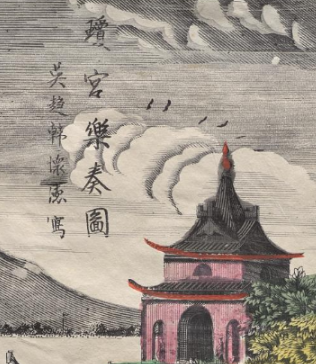 瓊宮樂奏圖
吳趨韓懷德寫